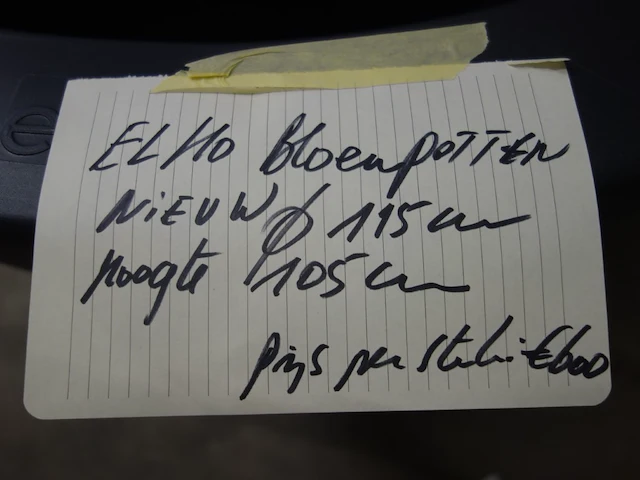 ELHO BloempoTTEN
NiEUW ø 115 cm
Hoogte 105 cm
prijs per stuk: €600
e